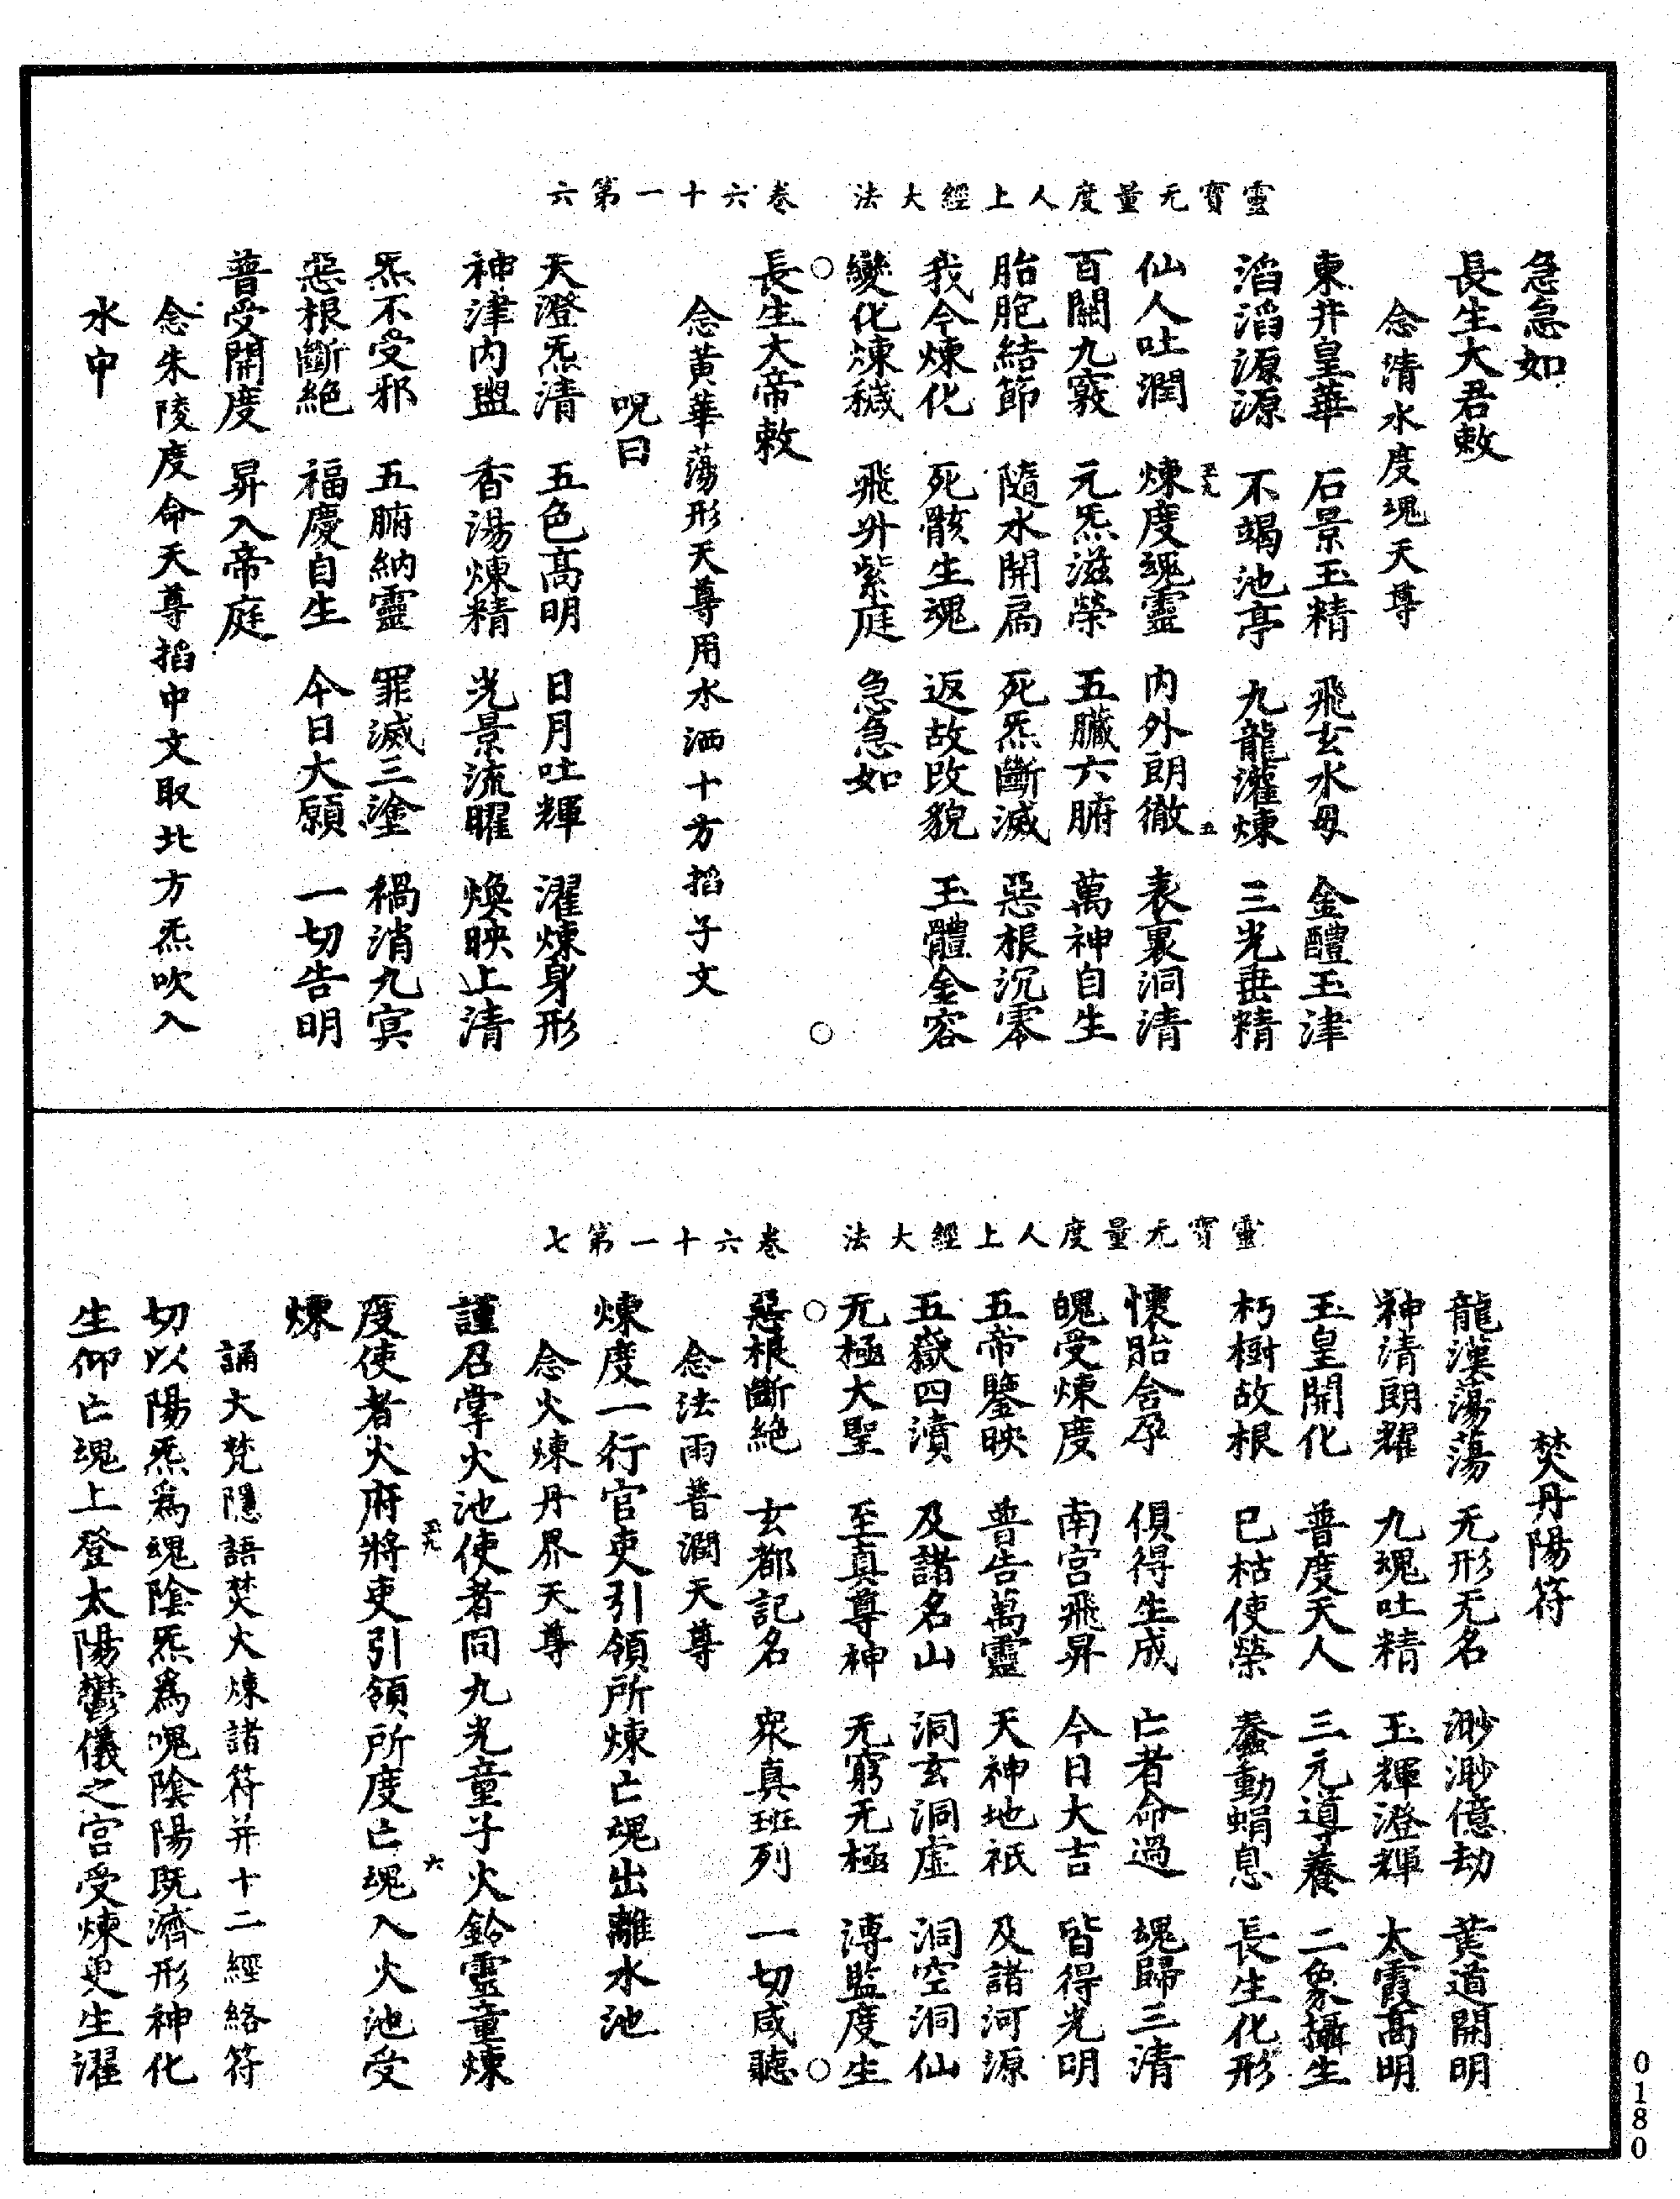 靈寶无量度人上經大法　卷六十一第六
急急如
長生大君敕
念清水度魂天尊
東井皇華　石景玉精　飛玄水母　金醴玉津
滔滔源源　不竭池亭　九龍灌煉　三光垂精
至九　五
仙人吐潤　煉度魂靈　内外朗徹　表裏洞清
百關九竅　元炁滋榮　五臟六腑　萬神自生
胎胞結節　隨水開扃　死炁斷滅　惡根沉零
我今煉化　死骸生魂　返故改貌　玉體金容
變化煉穢　飛升紫庭　急急如
○　○
長生大帝敕
念黃華蕩形天尊用水洒十方掐子文
呪曰
天澄炁清　五色高明　日月吐輝　濯煉身形
神津内盥　香湯煉精　光景流曜　煥映上清
炁不受邪　五腑納靈　罪滅三塗　禍消九冥
惡根斷絶　福慶自生　今日大願　一切告明
普受開度　昇入帝庭
念朱陵度命天尊掐中文取北方炁吹入
水中
靈寶无量度人上經大法　卷六十一第七
焚丹陽符
龍漢蕩蕩　无形无名　渺渺億劫　黄道開明
神清朗耀　九魂吐精　玉輝澄輝　太霞高明
玉皇開化　普度天人　三元道養　二象攝生
朽樹故根　已枯使榮　蠢動蜎息　長生化形
懷胎含孕　俱得生成　亡者命過　魂歸三清
魄受煉度　南宮飛昇　今日大吉　皆得光明
五帝鑒映　普告萬靈　天神地祇　及諸河源
五嶽四瀆　及諸名山　洞玄洞虛　洞空洞仙
无極大聖　至真尊神　无窮无極　溥監度生
○　○
惡根斷絶　玄都記名　衆真班列　一切咸聽
念法雨普潤天尊
煉度一行官吏引領所煉亡魂出離水池
念火煉丹界天尊
謹召掌火池使者同九光童子火鈴靈童煉
至九　六
度使者火府將吏引領所度亡魂入火池受
煉
誦大梵隱語焚火煉諸符并十二經絡符
切以陽炁爲魂陰炁爲魄陰陽既濟形神化
生仰亡魂上登太陽鬱儀之宮受煉更生濯
0180